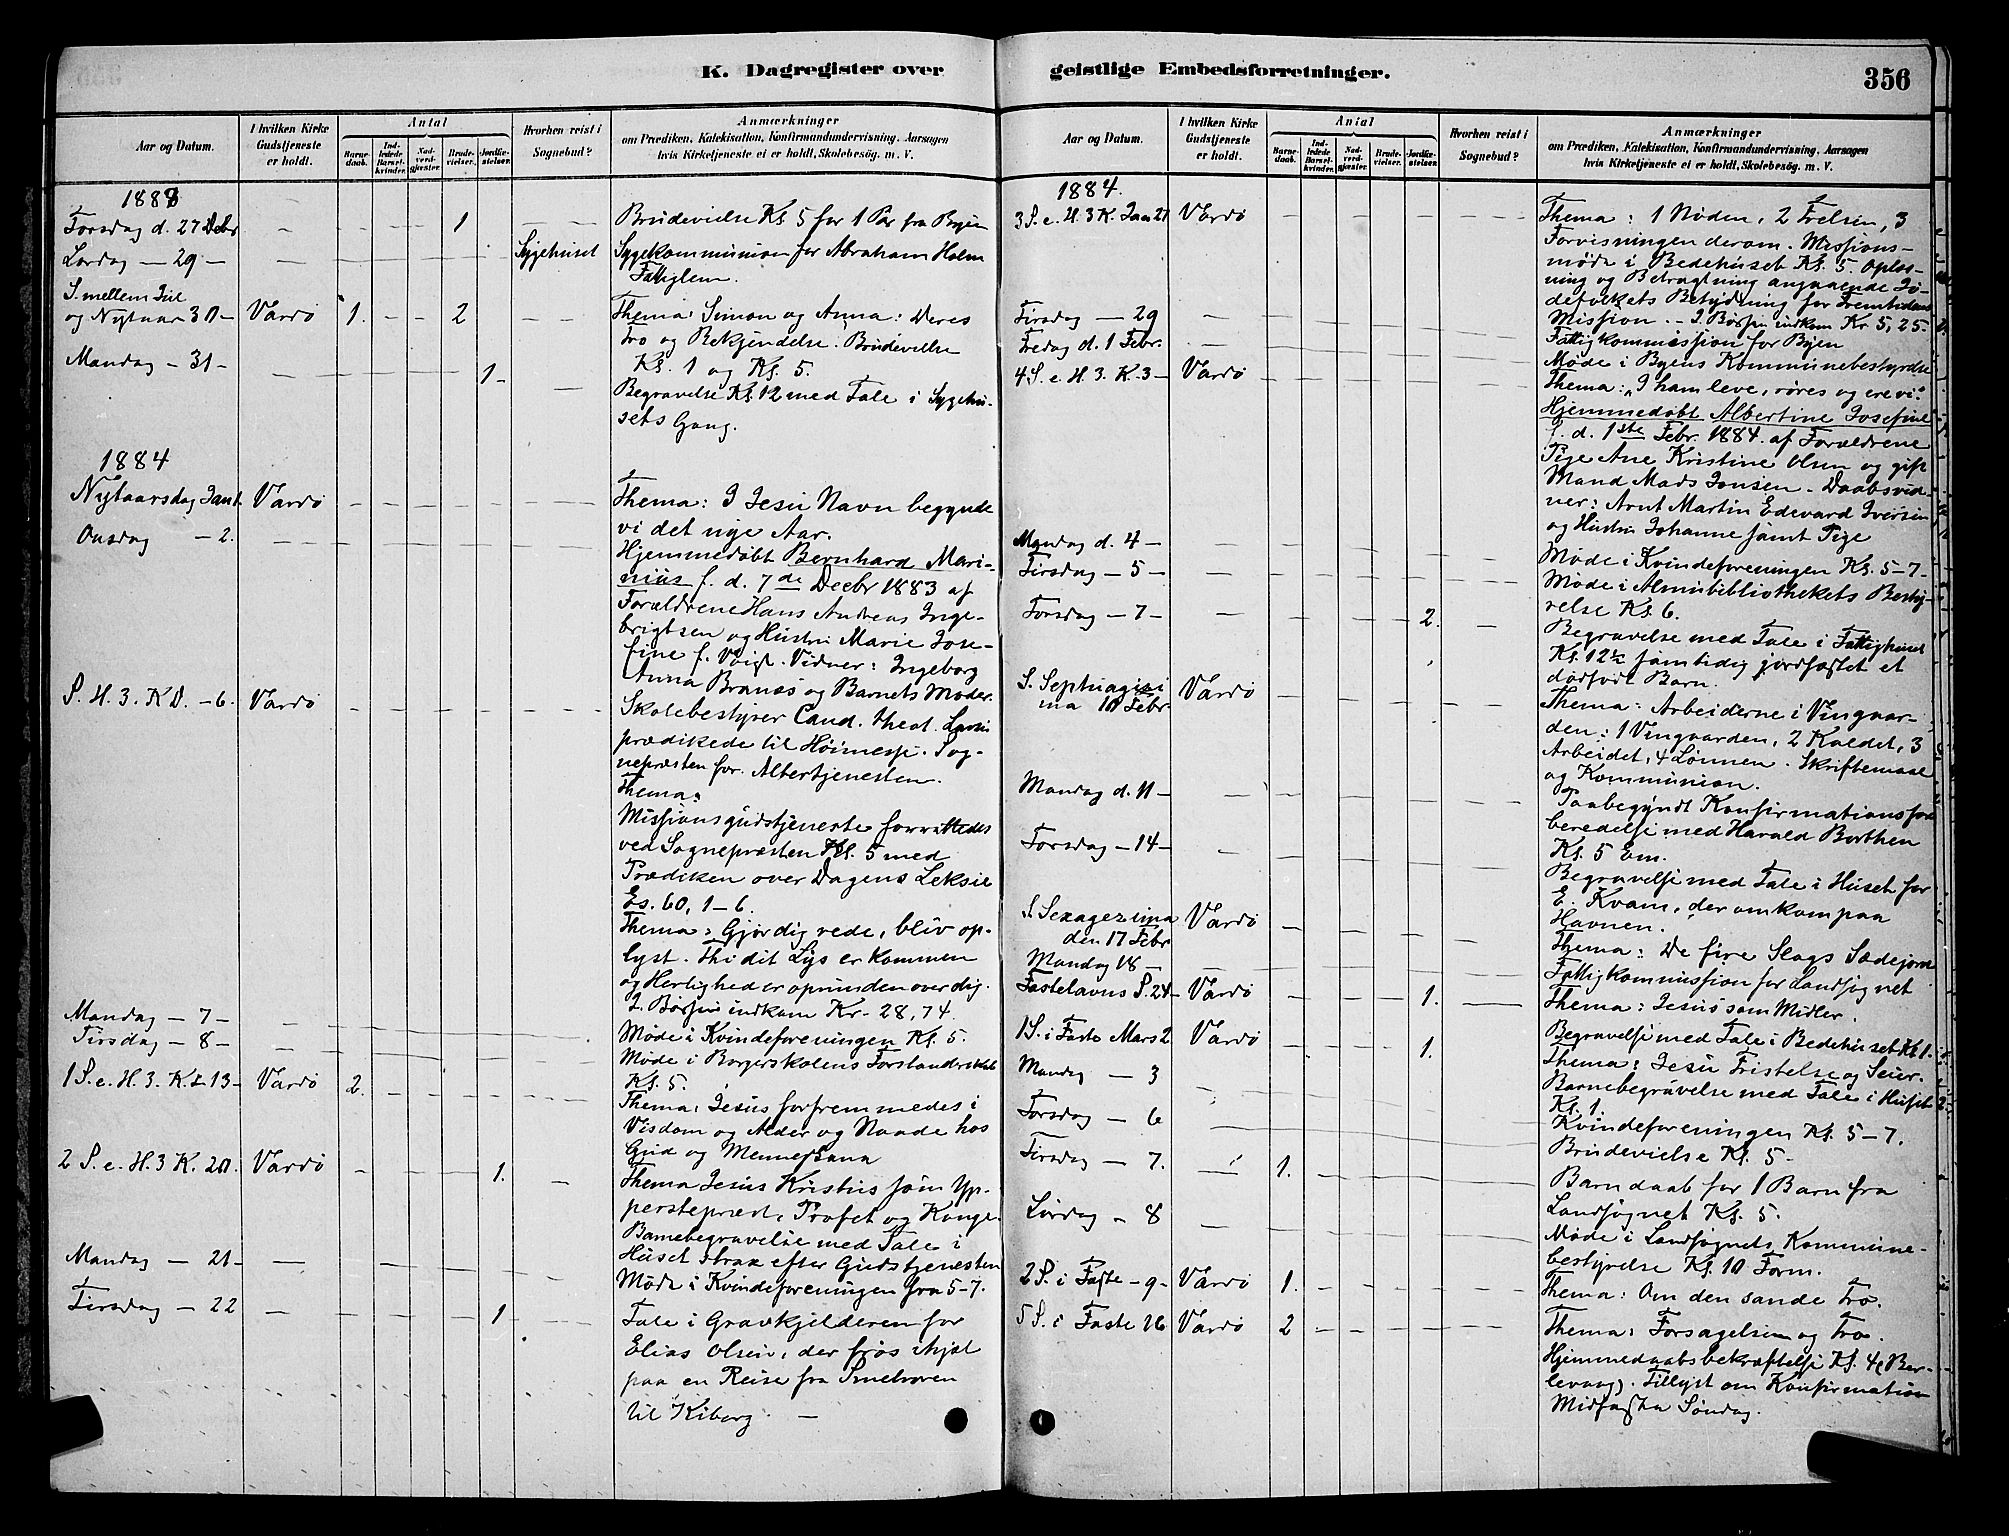 K. Dagregister over
Aar og Datum.
I hvilken Kirke
Gudstjeneste
er holdt.
Antal
Barne-
daab.
Ind-
ledede
Barsel-
kvinder.
Nad-
verd-
gjester
Brude-
vielser.
Jordfæ-
stelser.
Hvorhen reist i
Sognebud?
Anmærkninger
om Prædiken, Katekisation, Konfirmandundervisning, Aarsagen
hvis Kirketjeneste ei er holdt, Skolebesög. m. V.
1883
Torsdag d. 27 Decbr
1
Brudevielse Kl 5 for 1 Par fra Byen
Lördag — 29 —
Sygehuset
Sygekommunion for Abraham Holm
Fattiglem.
S. mellem Jul
og Nytaar 30 —
Vardö
1.
2
Thema: Simon og Anna: Deres
Tro og Bekjendelse. Brudevielse
Kl. 1 og Kl. 5.
Mandag — 31 —
1 —
Begravelse Kl. 12 med Tale i Sygehu-
sets Gang.
1884
Nytaarsdag Jan 1.
Vardö
Thema: I Jesu Navn begynde
vi det nye Aar.
Onsdag — 2.
Hjemmedöbt Bernhard Mari-
nius f. d. 7de Decbr 1883 af
Forældrene Hans Andreas Inge-
brigtsen og Hustru Marie Jose-
fine f. Voigt. Vidner: Ingeborg
Anna Branæs og Barnets Moder.
S. H. 3. K D. — 6.
Vardö
Skolebestyrer Cand. theol.
prædikede til Höimesse. Sog-
nepræsten for. Altertjenesten.
Thema:
Missionsgudstjeneste forrettedes
ved Sognepræsten Kl. 5 med
Prædiken over Dagens Leksie
Es. 60, 1 – 6.
Thema: Gjör dig rede, bliv op-
lyst. Thi dit Lys er kommen
og Herlighed er oprunden over dig.
I Bössen indkom Kr. 28,74.
Mandag — 7 —
Möde i Kvindeforeningen Kl. 5.
Tirsdag — 8 —
Möde i Borgerskolens Forstanderskab
Kl. 5.
1 S. e. H. 3. K. 13 —
Vardö
2.
Thema: Jesus forfremmedes i
Visdom og Alder og Naade hos
Gud og Mennesker
2 S. e. H. 3 K. 20.
Vardö
1.
Thema Jesus Kristus som Yp-
perstepræst, Profet og Konge.
Barnebegravelse med Tale i
Huset strax efter Gudstjenesten
Mandag — 21 —
Möde i Kvindeforeningen fra 5–7.
Tirsdag — 22
1
Tale i Gravkjelderen for
Elias Olsen, der frös ihjel
paa en Reise fra Smelroren
til Kiberg. —
geistlige Embedsforretninger.
356
Aar og Datum.
I hvilken Kirke
Gudstjeneste
er holdt.
Antal
Barne-
daab.
Ind-
ledede
Barsel-
kvinder.
Nad-
verd-
gjester
Brude-
vielser.
Jordfæ-
stelser
Hvorhen reist i
Sognebud?
Anmærkninger
om Prædiken, Katekisation, Konfirmandundervisning, Aarsagen
hvis Kirketjeneste ei er holdt, Skolebesög. m. V.
1884.
3 S. e. H. 3 K. Jan 27
Vardö
Thema: 1 Nöden, 2 Frelsen, 3
Forvisningen derom. Missions-
möde i Bedehuset Kl. 5. Oplæs-
ning og Betragtning angaaende Jö-
defolkets Betydning for Fremtidens
Mission. – I Bössen indkom Kr. 5,25.
Tirsdag — 29
Fattigkommission for Byen
Fredag d. 1 Febr.
Möde i Byens Kommunebestyrelse
4 S. e. H. 3. K. 3 —
Vardö
Thema: "I ham leve, röres og ere vi".
Hjemmedöbt Albertine Josefine
f. d. 1ste Febr. 1884 af Forældrene
Pige Ane Kristine Olsen og gift
Mand Mads Jensen. Daabsvid-
ner: Arnt Martin Edevard Iversen
og Hustru Johanne samt Pige
Mandag d. 4 —
Möde i Kvindeforeningen Kl. 5–7 —
Tirsdag — 5 —
Möde i Almuebibliothekets Besty-
relse Kl. 6.
Torsdag — 7 —
2.
Begravelse med Tale i Fattighuset
Kl. 12½ samtidig jordfæstet et
dödfödt Barn.
S. Septuagesi
ma 10 Febr
Vardö
Thema: Arbeiderne i Vingaar-
den: 1 Vingaarden, 2 Kaldet, 3
Arbeidet, 4 Lönnen. Skriftemaal
og Kommunion.
Mandag d. 11 —
Paabegyndt Konfirmationsfor
beredelse med Harald Borthen
Kl. 5 Em.
Torsdag — 14 —
Begravelse med Tale i Huset for
E. Kvam, der omkom paa
Havnen.
S. Sexagesima
den 17 Febr
Vardö
Thema: De fire Slags Sædejord
Mandag 18 —
Fattigkommission for Landsognet
Fastelavns S. 24 —
Vardö
1.
Thema: Jesus som Midler.
Begravelse med Tale i Bedehuset Kl 1.
1 S. i Faste Mars 2
Vardö
1.
Thema: Jesu Fristelse og Seier.
Barnebegravelse med Tale i Huset
Kl. 1.
Mandag — 3
Kvindeforeningen Kl. 5–7.
Torsdag — 6
Brudevielse Kl. 5 –
Tirsdag — 7.
1.
Barndaab for 1 Barn fra
Landsognet Kl. 5.
Lördag — 8
Möde i Landsognets Kommune-
bestyrelse Kl. 10 Form.
2 S. i Faste — 9 —
Vardö
1.
Thema: Om den sande Tro.
5 S. i Faste 26
Vardö
2
Thema: Forsagelsen og Tro.
Hjemmedaabsbekræftelse Kl. 4 (Ber-
levaag). Tillyst om Konfirmation
Midfaste Söndag.